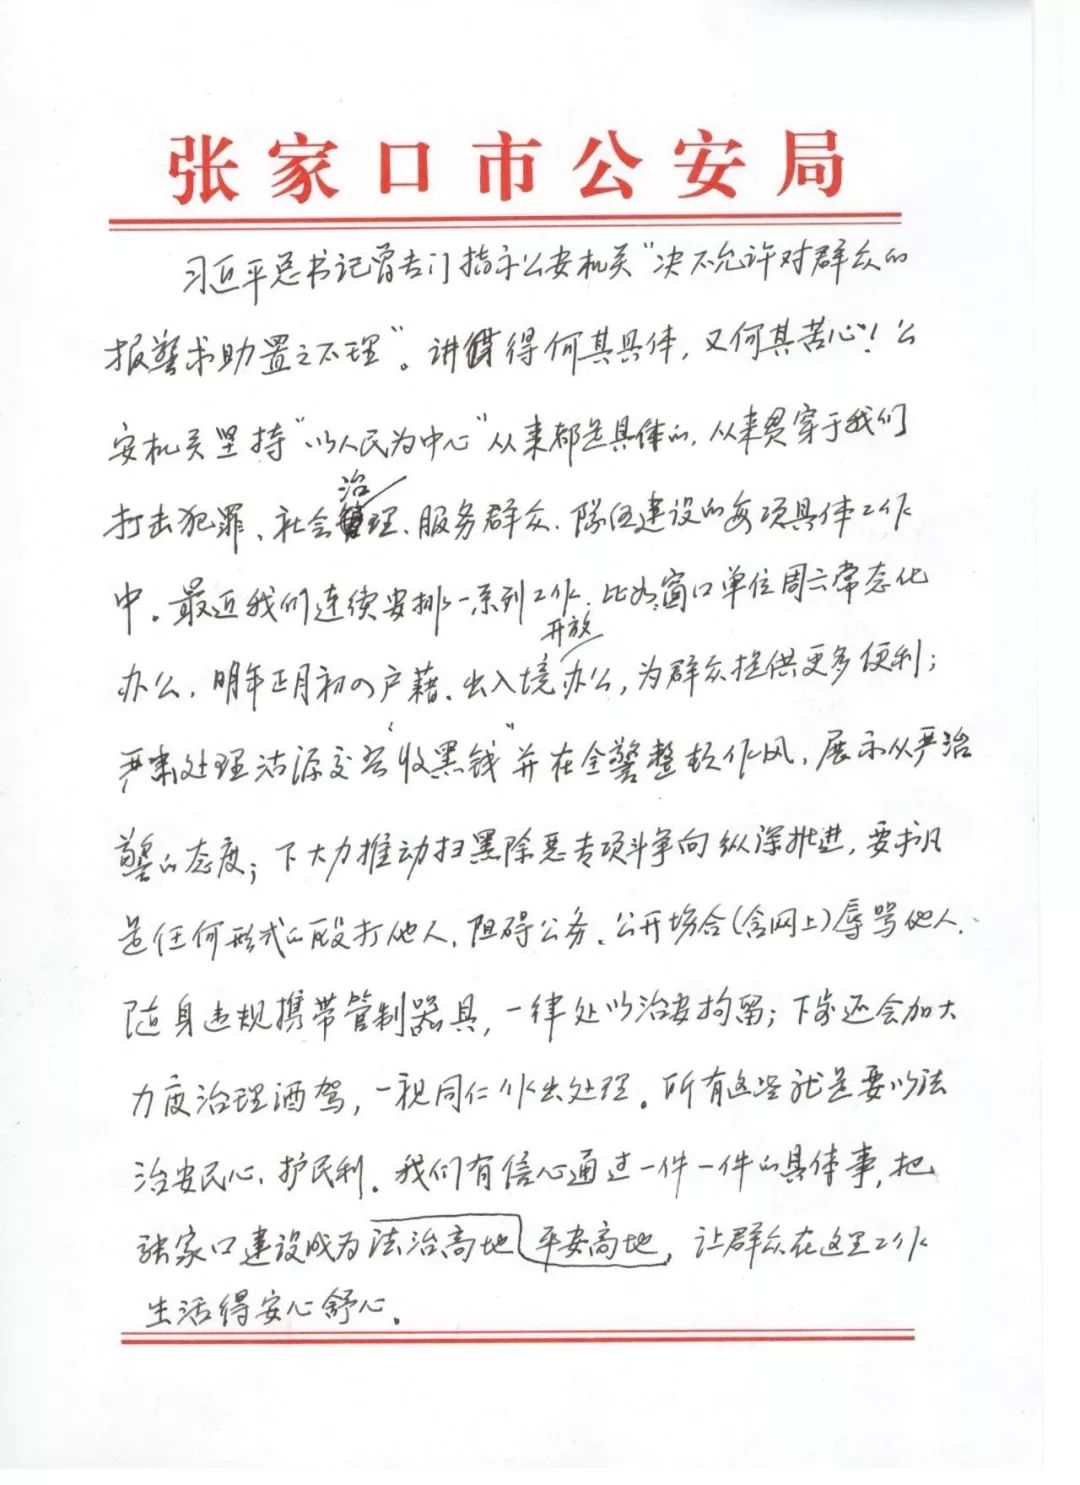 张家口市公安局
习近平总书记曾专门指示公安机关“决不允许对群众的
报警求助置之不理”。讲得何其具体，又何其苦心！公
安机关坚持“以人民为中心”从来都是具体的，从来贯穿于我们
打击犯罪、社会治理、服务群众、队伍建设的每项具体工作
中。最近我们连续安排一系列工作，比如，窗口单位周六常态化
开放
办公，明年正月初八户籍、出入境办公，为群众提供更多便利；
严肃处理沽源交警“收黑钱”并在全警整顿作风，展示从严治
警的态度；下大力推动扫黑除恶专项斗争向纵深推进，要求凡
是任何形式的殴打他人、阻碍公务、公开场合(含网上)辱骂他人、
随身违规携带管制器具，一律处以治安拘留；下步还会加大
力度治理酒驾，一视同仁作出处理。所有这些就是要以法
治安民心、护民利。我们有信心通过一件一件的具体事，把
张家口建设成为法治高地平安高地，让群众在这里工作
生活得安心舒心。